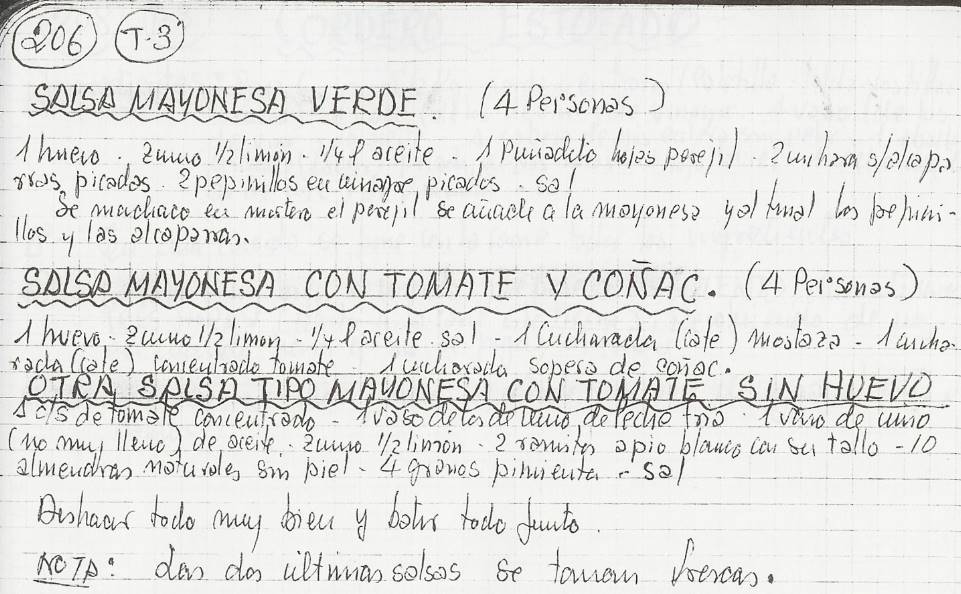 206 T-3
SALSA MAYONESA VERDE. (4 Personas)
1 huevo - Zumo 1/2 limón - 1/4 l aceite - 1 Puñadito hojas perejil - 2 cuchara s/alcapa
rras, picadas. 2 pepinillos en vinagre, picados - sal
Se machaca en mortero el perejil se añade a la mayonesa y al final los pepini-
llos y las alcaparras.
SALSA MAYONESA CON TOMATE Y COÑAC. (4 Personas)
1 huevo - Zumo 1/2 limon - 1/4 l aceite. sal - 1 Cucharada (cafe) mostaza - 1 cucha-
rada (cafe) concentrado tomate - 1 cucharada sopera de coñac.
OTRA SALSA TIPO MAYONESA CON TOMATE SIN HUEVO
1 c/s de tomate concentrado - 1 vaso de los de vino, de leche fria - 1 vaso de vino
(no muy lleno) de aceite. Zumo 1/2 limon - 2 ramitas apio blanco con su tallo - 10
almendras naturales sin piel - 4 granos pimienta - sal
Deshacer todo muy bien y batir todo junto.
NOTA: Las dos ultimas salsas se toman frescas.